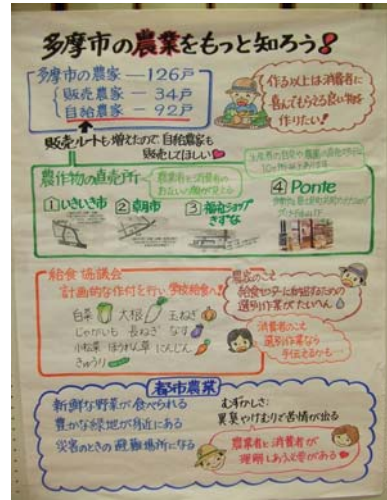 多摩市の農業をもっと知ろう!
多摩市の農家 ― 126戸
販売農家 ― 34戸
自給農家 ― 92戸
作る以上は消費者に
喜んでもらえる良い物を
作りたい!
販売ルートも増えたので、自給農家も
販売してほしい
農作物の直売所
農業者と消費者の
おたがいの顔が見える
①いきいき市
②朝市
③福祉ショップ
きずな
④Ponte
給食協議会
計画的な作付を行い、学校給食へ!
白菜 大根 玉ねぎ
じゃがいも 長ねぎ なす
小松菜 ほうれん草 にんじん
きゅうり
農家のこと
給食センターに出荷するための
選別作業がたいへん
消費者のこと
選別作業なら
手伝えるかも…
都市農業
新鮮な野菜が食べられる
豊かな緑地が身近にある
災害のときの避難場所になる
むずかしさ:
異臭やけむりで苦情が出る
農業者と消費者が
理解しあう必要がある